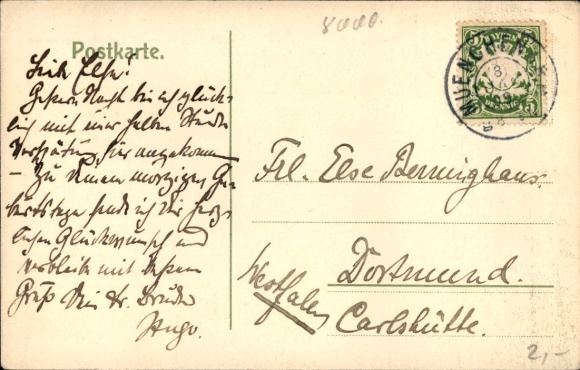 8000.
Postkarte.
Liebe Else!
Gestern Nacht bin ich glück-
lich mit einer halben Stunde
Verspätung hier angekommen
– Zu Deinem morgigen Ge-
burtstage sende ich Dir herz-
lichen Glückwunsch und
verbleibe mit bestem
Gruß Dein tr. Bruder
Hugo.
MUENCHEN
BAYERN
5 PFENNIG 5
Frl. Else Berninghaus.
Dortmund.
Westfalen
Carlshütte.
2,-